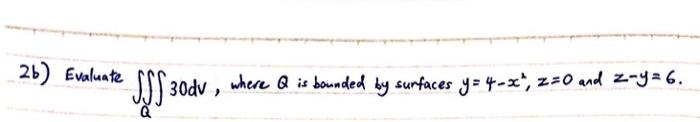 2b) Evaluate ∭_Q 30dv, where Q is bounded by surfaces y=4-x², z=0 and z-y=6.